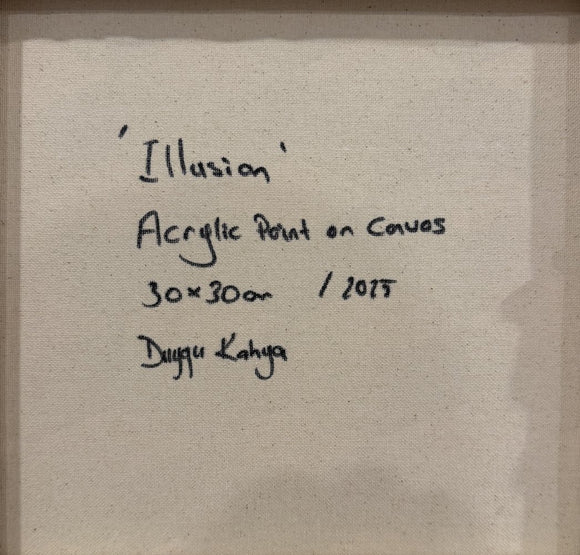 'Illusion'
Acrylic Paint on Canvas
30x30cm / 2025
Duygu Kahya